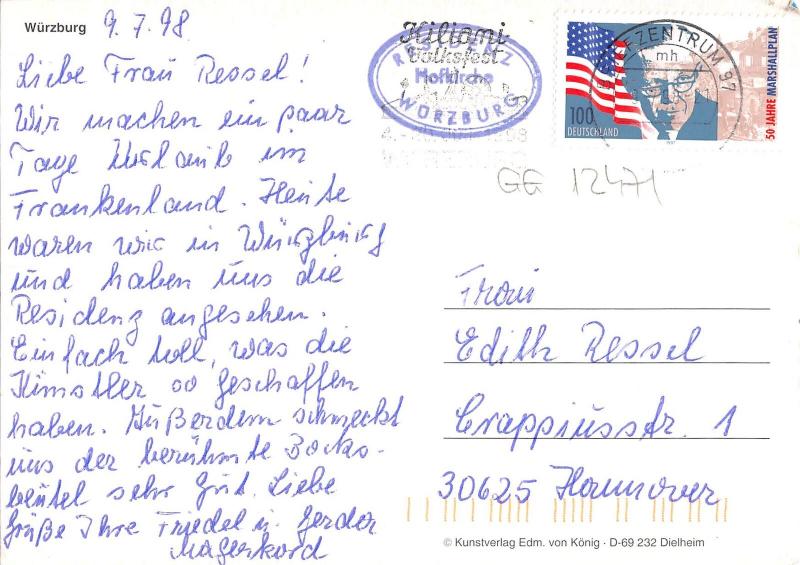 Würzburg 9.7.98
Liebe Frau Ressel!
Wir machen ein paar
Tage Urlaub im
Frankenland. Heute
waren wir in Würzburg
und haben uns die
Residenz angesehen.
Einfach toll, was die
Künstler so geschaffen
haben. Außerdem schmeckt
uns der berühmte Bocks-
beutel sehr gut. Liebe
Grüße Ihre Friedel u. Gerder
Magerkord
Kiliani
Volksfest
RESIDENZ
Hofkirche
WÜRZBURG
BRIEFZENTRUM 97
mh
100
DEUTSCHLAND
1997
50 JAHRE MARSHALLPLAN
GG 12471
Frau
Edith Ressel
Crappiusstr. 1
30625 Hannover
© Kunstverlag Edm. von König · D-69 232 Dielheim